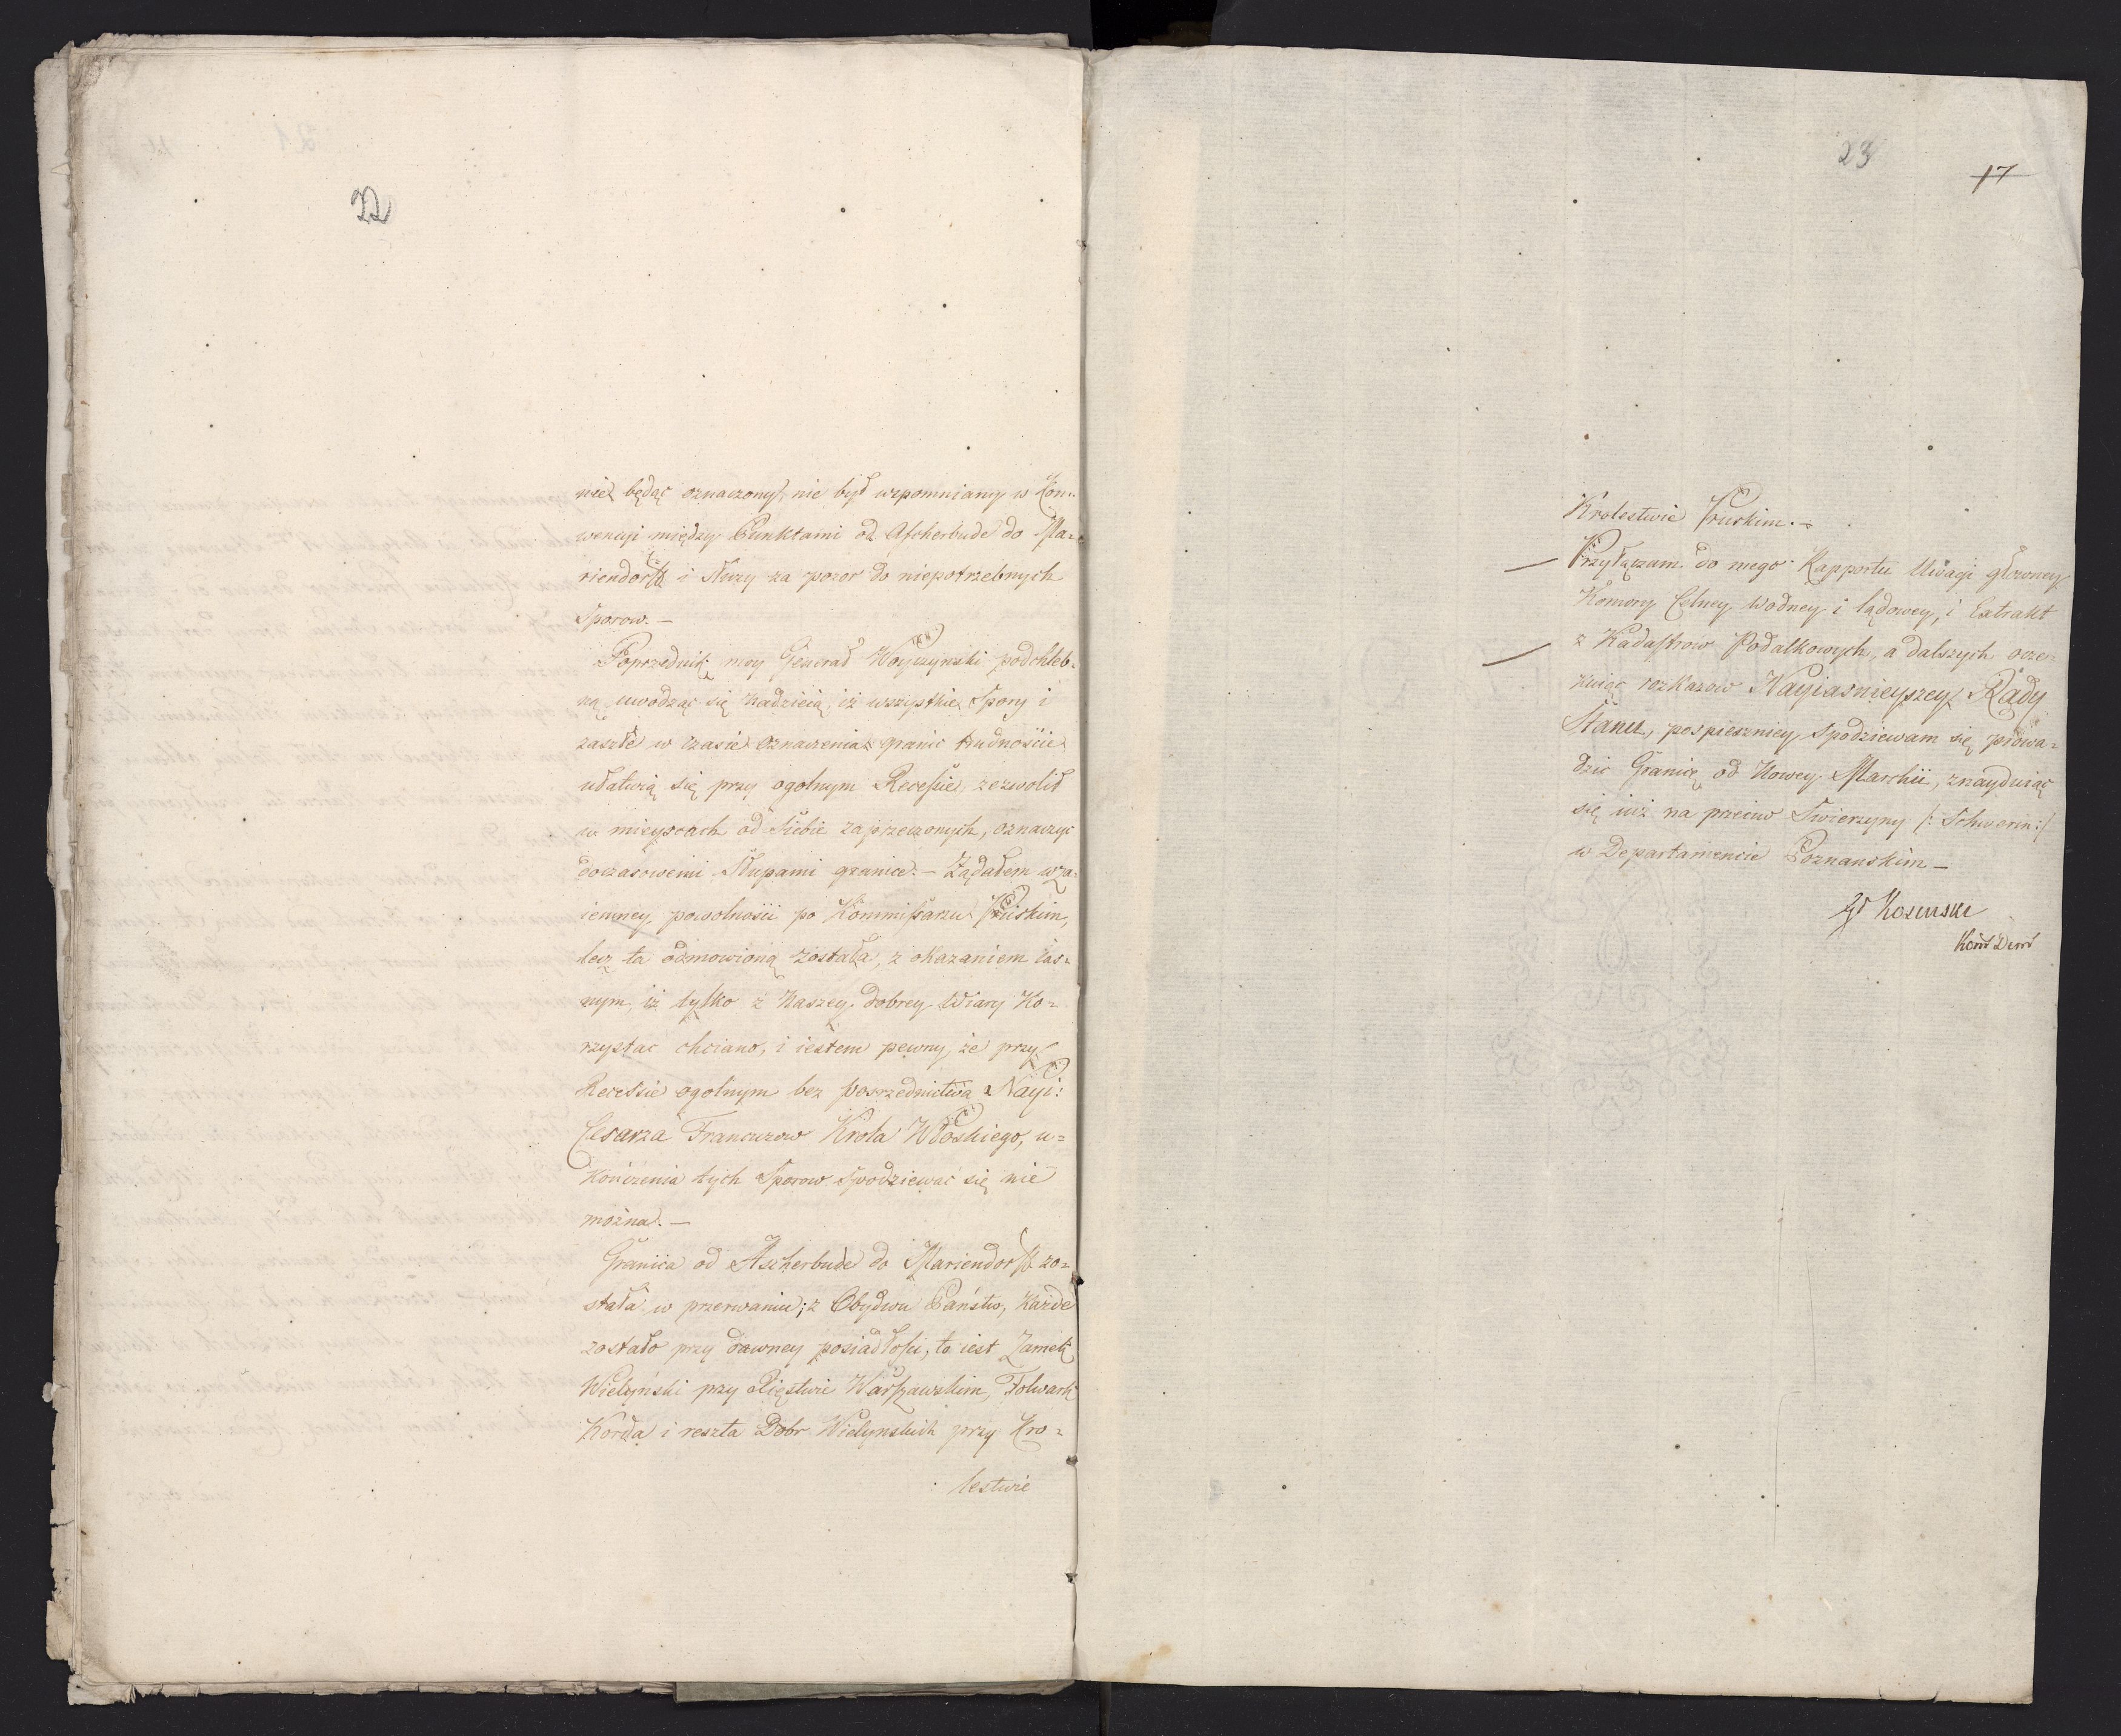 22
nie będąc oznaczony, nie był wspomniany w Kon=
wencyi między Punktami od Ascherbude do Ma=
riendorff i służy za pozor do niepotrzebnych
Sporow. —
Poprzednik moy Generał Woyczynski podchleb=
ną uwodząc się nadzieią, iż wszystkie Spory i
zaszłe w czasie oznaczenia granic trudnoście
ułatwią się przy ogolnym Recessie, zezwolił
w mieyscach od Siebie zaprzeczonych, oznaczyc
doczasowemi Słupami granice. — Żądałem wza=
iemney powolności po Kommissarzu Pruskim,
lecz ta odmowioną została, z okazaniem ias=
nym, iż tylko z Naszey dobrey Wiary Ko=
rzystac chciano, i iestem pewny, że przy
Recessie ogolnym bez posrzednictwa Nayi:
Cesarza Francuzow Krola Włoskiego, u=
kończenia tych Sporow spodziewać się nie
można. —
Granica od Ascherbude do Mariendorff zo=
stała w przerwaniu; z Obydwu Państw, Każde
zostało przy dawney posiadłości, to iest Zamek
Wielyński przy Xięstwie Warszawskim, Folwark
Korda i reszta Dobr Wielynskich przy Kro=
lestwie
23
17
Krolestwie Pruskim. —
Przyłączam do niego Rapportu Uwagi głowney
Komory Celney wodney i lądowey, i Extrakt
z Kadastrow Podatkowych, a dalszych ocze=
kuiąc rozkazow Nayiasnieyszey Rady
Stanu, pospieszniey spodziewam się prowa=
dzic Granicę od Nowey Marchii, znayduiąc
się iuż na przeciw Swierzyny /: Schwerin :/
w Departamencie Poznanskim —
Kosinski